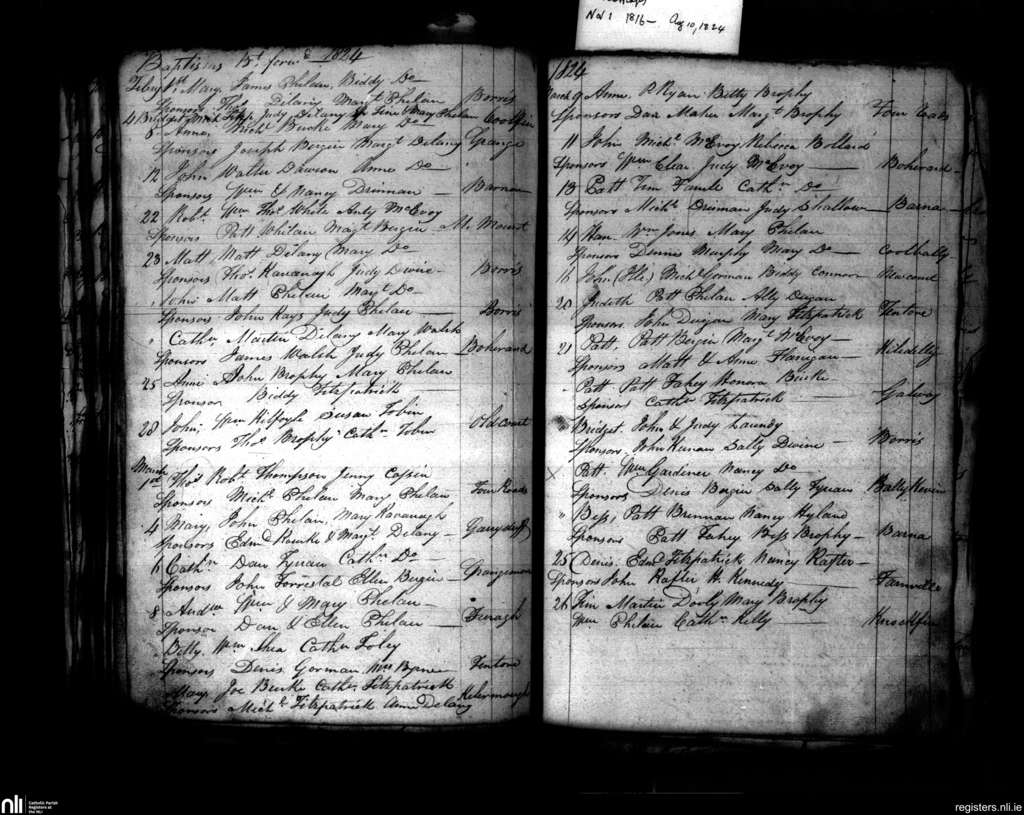 Nov 1 1816 - Aug 10, 1824
Baptisms Bt. forwd. 1824
Feby 1st Mary, James Phelan, Biddy Do
Sponsors Thos. Delany Margt Phelan Borris
4 Bridget Judy Delany Mary Phelan
8 Anne, Michl Burke Mary Do
Sponsors Joseph Bergin Margt Delany Grange
12 John Walter Dawson Anne Do
Sponsors Wm & Nancy Drinnan Barna
22 Robt. Wm Thos. White Anty McEvoy
Sponsors Patt Whelan Margt Bergin Mt Mount
23 Matt, Matt Delany Mary Do
Sponsors Thos. Kavanagh Judy Divine Borris
" John Matt Phelan Margt Do
Sponsors John Kays Judy Phelan Borris
" Cathn Martin Delany Mary Walsh
Sponsors James Walsh Judy Phelan Boherard
25 Anne John Brophy Mary Phelan
Sponsor Biddy Fitzpatrick
28 John, Wm Kilfoyle Susan Tobin
Sponsors Thos. Brophy Cathn Tobin Old court
March
1st Thos Robt. Thompson Jenny
Sponsors Michl Phelan Mary Phelan Four Roads
4 Mary, John Phelan, Mary Kavanagh
Sponsors Edmd Rourke & Margt Delany Garryduff
6 Cathn Dan Tynan Cathn Do
Sponsors John Forrestal Ellen Bergin
8 Andw Wm & Mary Phelan
Sponsor Dan & Ellen Phelan
Betty Wm Shea Cathn Foley
Sponsors Denis Gorman, Mrs Byrne Tintore
Mary Joe Burke Cathn Fitzpatrick
Sponsors Michl Fitzpatrick Anne Delany
1824
March 9 Anne P. Ryan Betty Brophy
Sponsors Dan Maher Margt Brophy Four
11 John Michl McEvoy Rebecca Bollard
Sponsors Wm Judy McEvoy Boherard
13 Patt Tim Cathn Do
Sponsors Michl Drinnan Judy Shallow Barna
14 Han. Wm Jones Mary Phelan
Sponsors Dennis Murphy Mary Do Coolbally
16 John Michl Gorman Biddy Connor
20 Judith Patt Phelan Ally Duigan
Sponsors John Duigan Mary Fitzpatrick Tintore
21 Patt. Patt Bergin Margt McEvoy
Sponsors Matt & Anne Flanigan Kiledelly
Patt Patt Fahey Honora Burke
Sponsors Cathn Fitzpatrick Galway
Bridget, John & Judy Laundy
Sponsors John Keenan Sally Divine Borris
X Patt. Wm Gardiner Nancy Do
Sponsors Denis Bergin Sally Tynan Ballykevin
" Bess, Patt Brennan Nancy Hyland
Sponsors Patt Fahey Bess Brophy Barna
25 Denis. Edmd Fitzpatrick Nancy Rafter
Sponsors John Rafter H. Kennedy
26 Martin Dooly Mary Brophy
Wm Phelan Cathn Kelly
nli Catholic Parish
Registers at
the NLI
registers.nli.ie